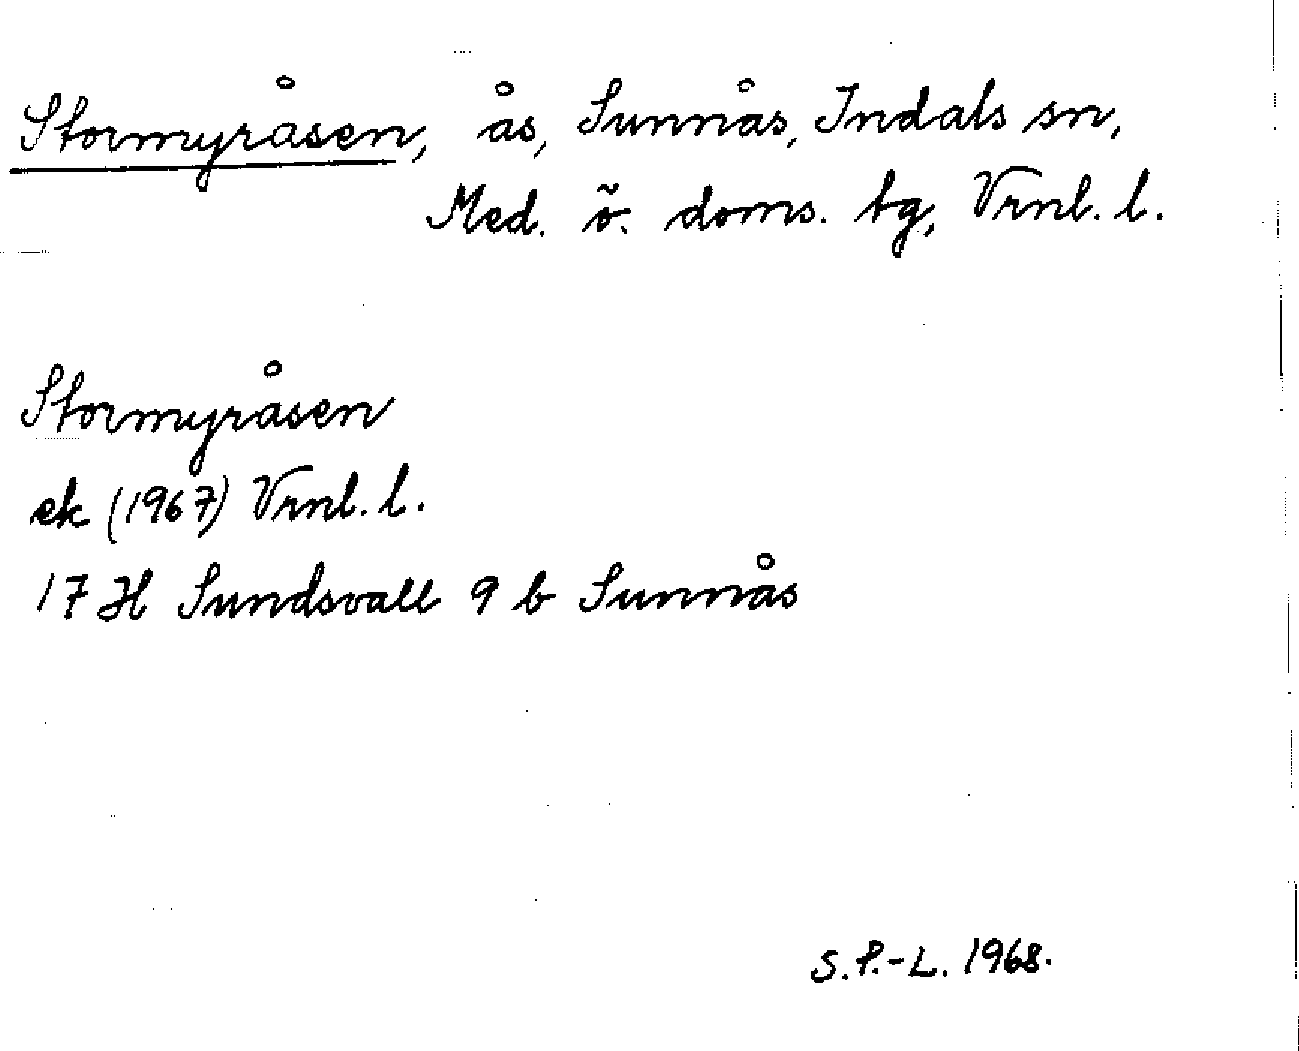 Stormyråsen, ås, Sunnås, Indals sn,
Med. ö. doms. tg, Vrnl. l.
Stormyråsen
ek (1967) Vrnl. l.
17 H Sundsvall 9 b Sunnås
S.P.-L. 1968.